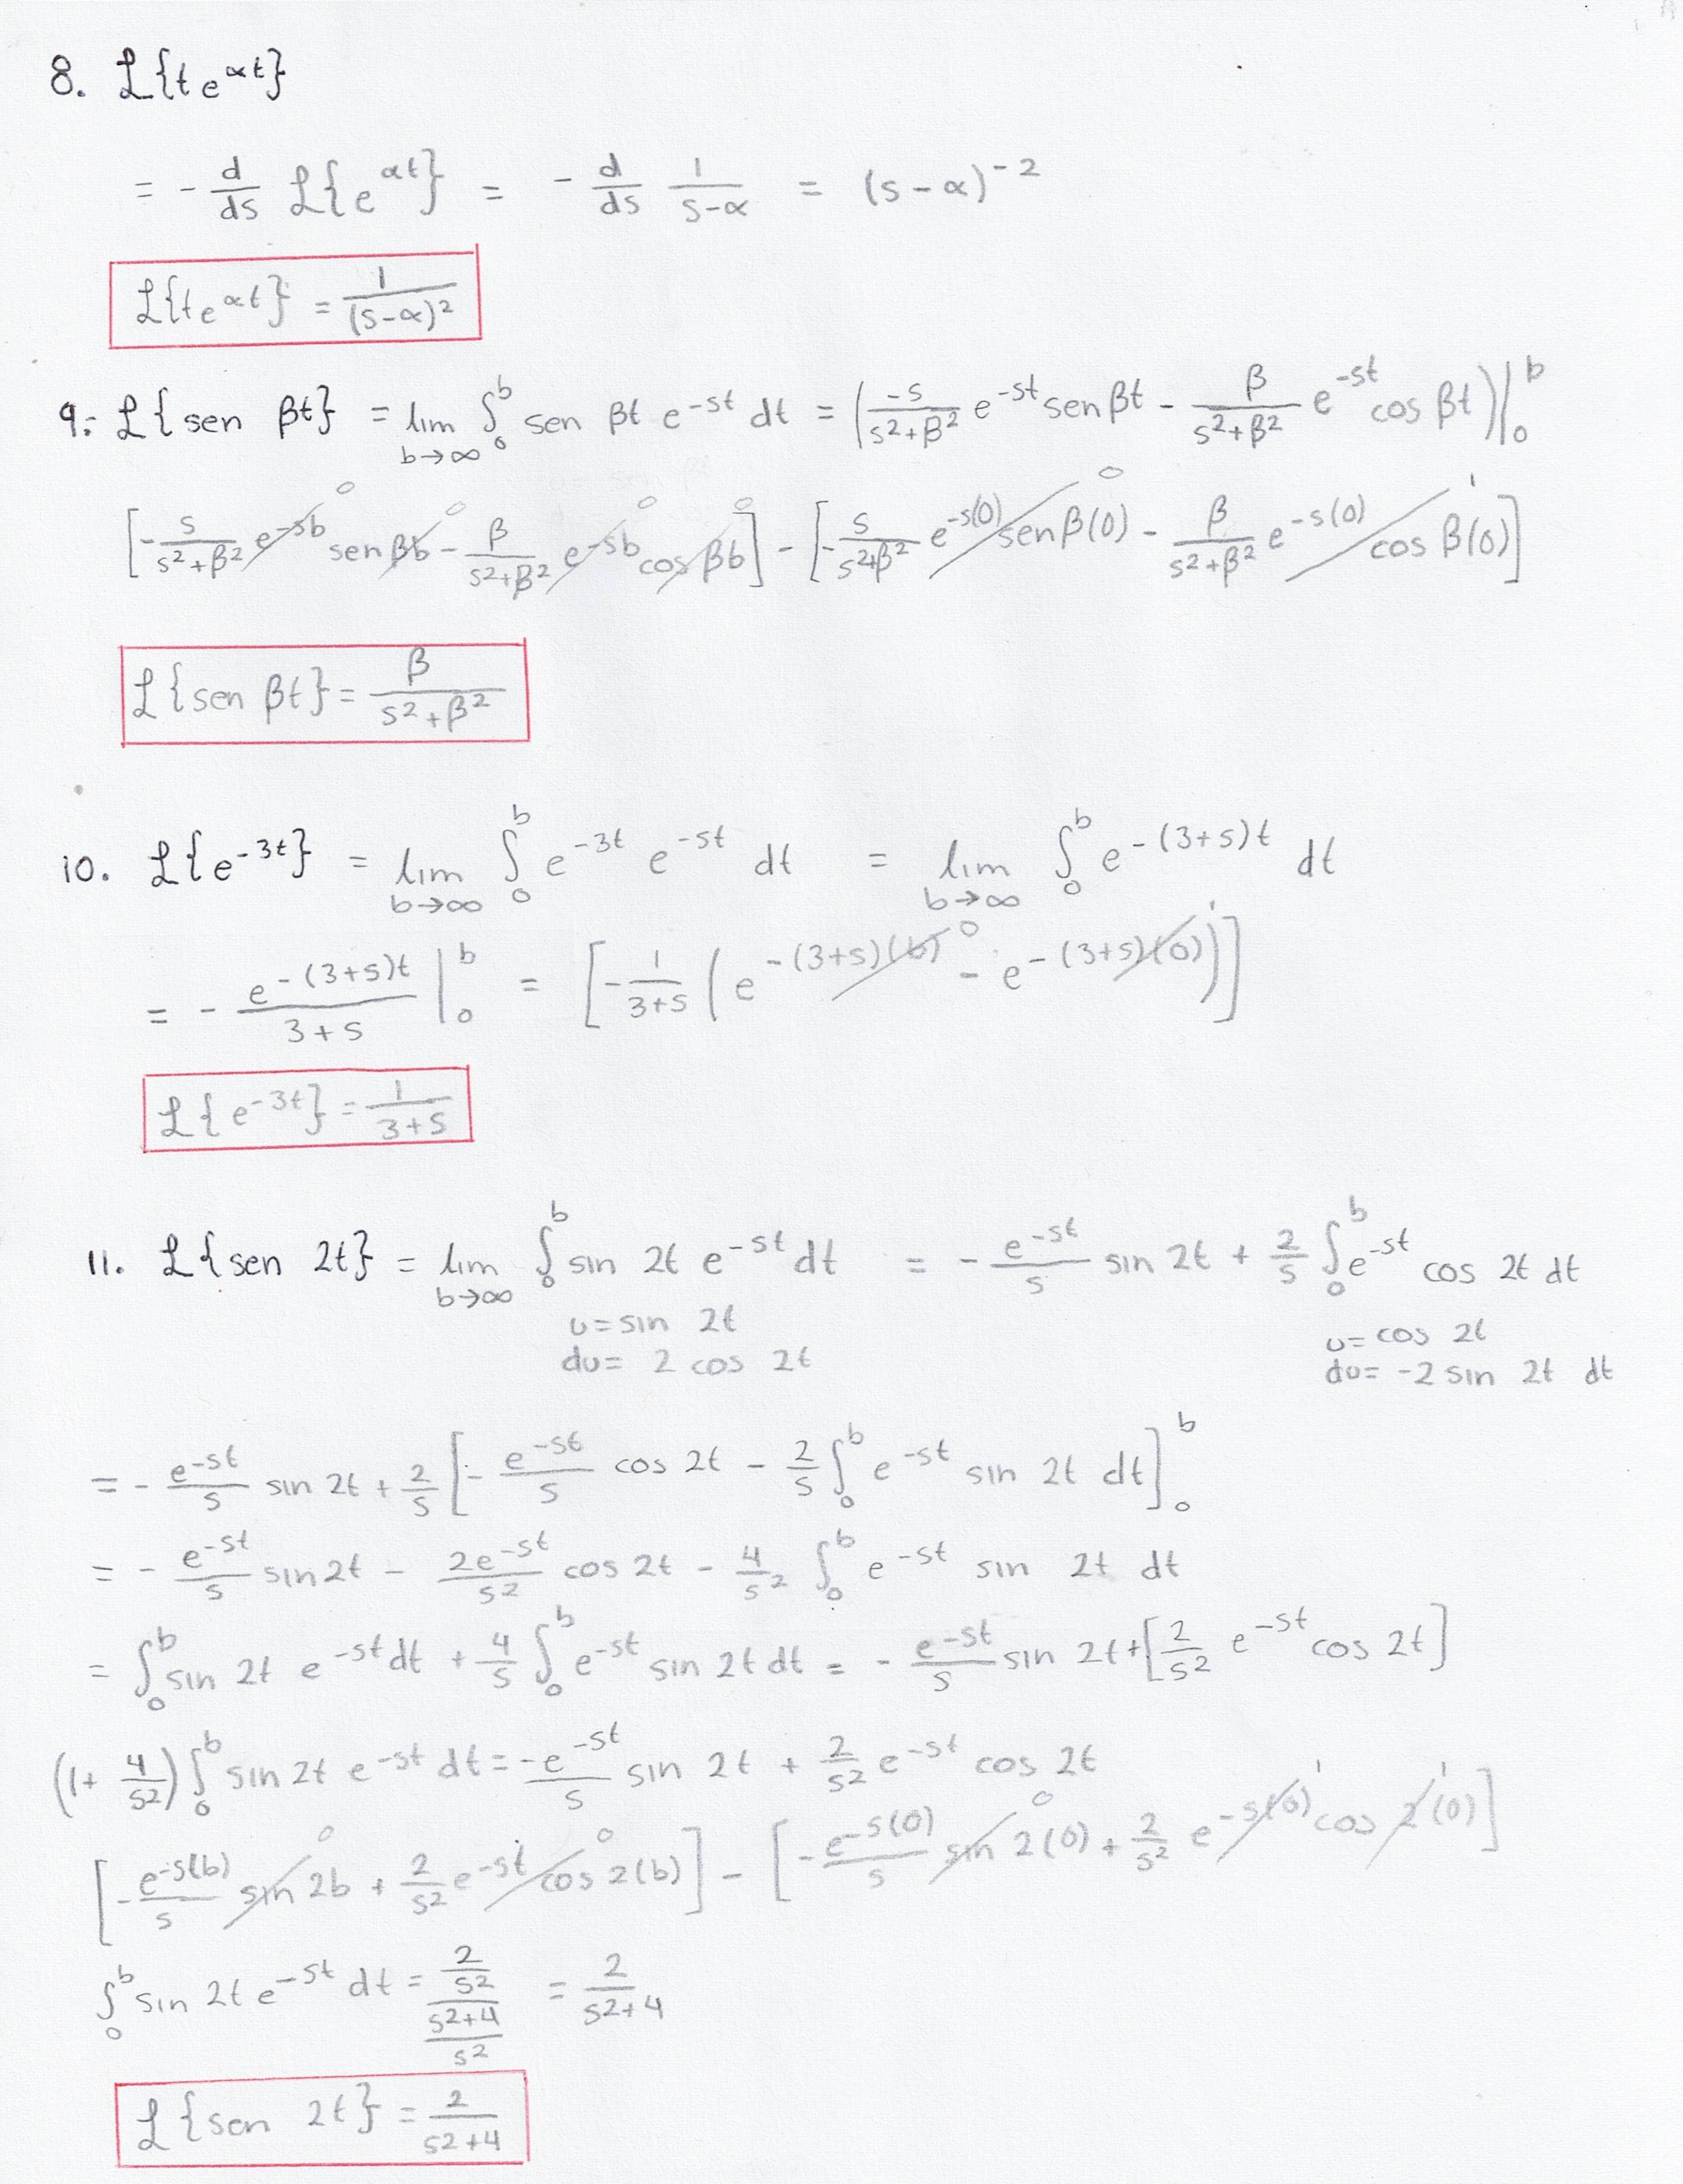 8. ℒ{t e^αt}
= - d/ds ℒ{e^αt} = - d/ds 1/(s-α) = (s-α)^-2
ℒ{t e^αt} = 1/(s-α)^2
9.- ℒ{sen βt} = lim b→∞ ∫_0^b sen βt e^-st dt = (-s/(s^2+β^2) e^-st sen βt - β/(s^2+β^2) e^-st cos βt)|_0^b
[-s/(s^2+β^2) e^-sb sen βb - β/(s^2+β^2) e^-sb cos βb] - [-s/(s^2+β^2) e^-s(0) sen β(0) - β/(s^2+β^2) e^-s(0) cos β(0)]
ℒ{sen βt} = β/(s^2+β^2)
10. ℒ{e^-3t} = lim b→∞ ∫_0^b e^-3t e^-st dt = lim b→∞ ∫_0^b e^-(3+s)t dt
= - e^-(3+s)t/(3+s) |_0^b = [-1/(3+s) (e^-(3+s)(b) - e^-(3+s)(0))]
ℒ{e^-3t} = 1/(3+s)
11. ℒ{sen 2t} = lim b→∞ ∫_0^b sin 2t e^-st dt = - e^-st/s sin 2t + 2/s ∫_0^b e^-st cos 2t dt
u= sin 2t u= cos 2t
du= 2 cos 2t du= -2 sin 2t dt
= - e^-st/s sin 2t + 2/s [- e^-st/s cos 2t - 2/s ∫_0^b e^-st sin 2t dt]_0^b
= - e^-st/s sin 2t - 2e^-st/s^2 cos 2t - 4/s^2 ∫_0^b e^-st sin 2t dt
= ∫_0^b sin 2t e^-st dt + 4/s ∫_0^b e^-st sin 2t dt = - e^-st/s sin 2t + [2/s^2 e^-st cos 2t]
(1+ 4/s^2) ∫_0^b sin 2t e^-st dt = -e^-st/s sin 2t + 2/s^2 e^-st cos 2t
[- e^-s(b)/s sin 2b + 2/s^2 e^-st cos 2(b)] - [- e^-s(0)/s sin 2(0) + 2/s^2 e^-s(0) cos 2(0)]
∫_0^b sin 2t e^-st dt = (2/s^2)/((s^2+4)/s^2) = 2/(s^2+4)
ℒ{sen 2t} = 2/(s^2+4)